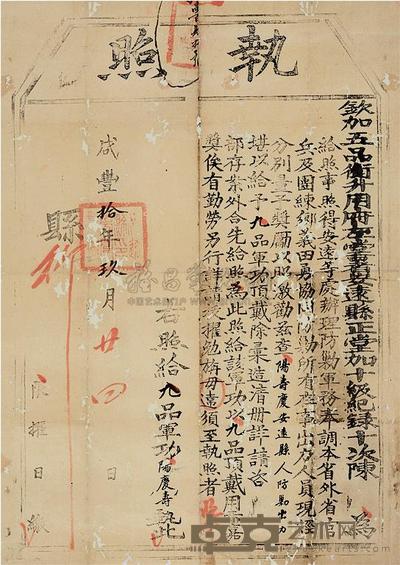 執照
欽加五品銜升用府安遠縣正堂加十級紀錄十次陳 為
給照事照得安遠等處辦理防勦軍務奉調本省外省官
兵及團練鄉義田勇協同防勦所有在事出力人員現經
分別量予獎勵以昭激勸茲查陽壽慶安遠縣人防勦出力
堪以給予九品軍功頂戴除彙造清冊詳請咨
部存案外合先給照為此照給該軍功以九品頂戴用
獎俟有勤勞另行詳請拔擢勉旃毋違須至執照者
右照給九品軍功陽慶壽執此
咸豐拾年玖月廿四日
縣行
限 日繳